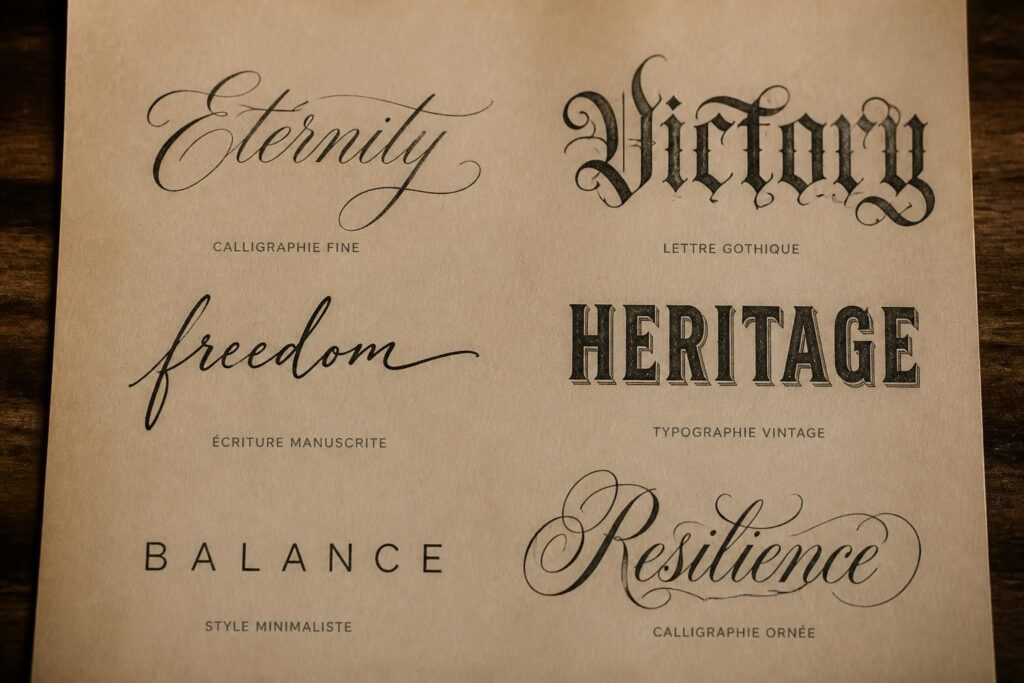 Eternity
CALLIGRAPHIE FINE
Victory
LETTRE GOTHIQUE
freedom
ÉCRITURE MANUSCRITE
HERITAGE
TYPOGRAPHIE VINTAGE
BALANCE
STYLE MINIMALISTE
Resilience
CALLIGRAPHIE ORNÉE